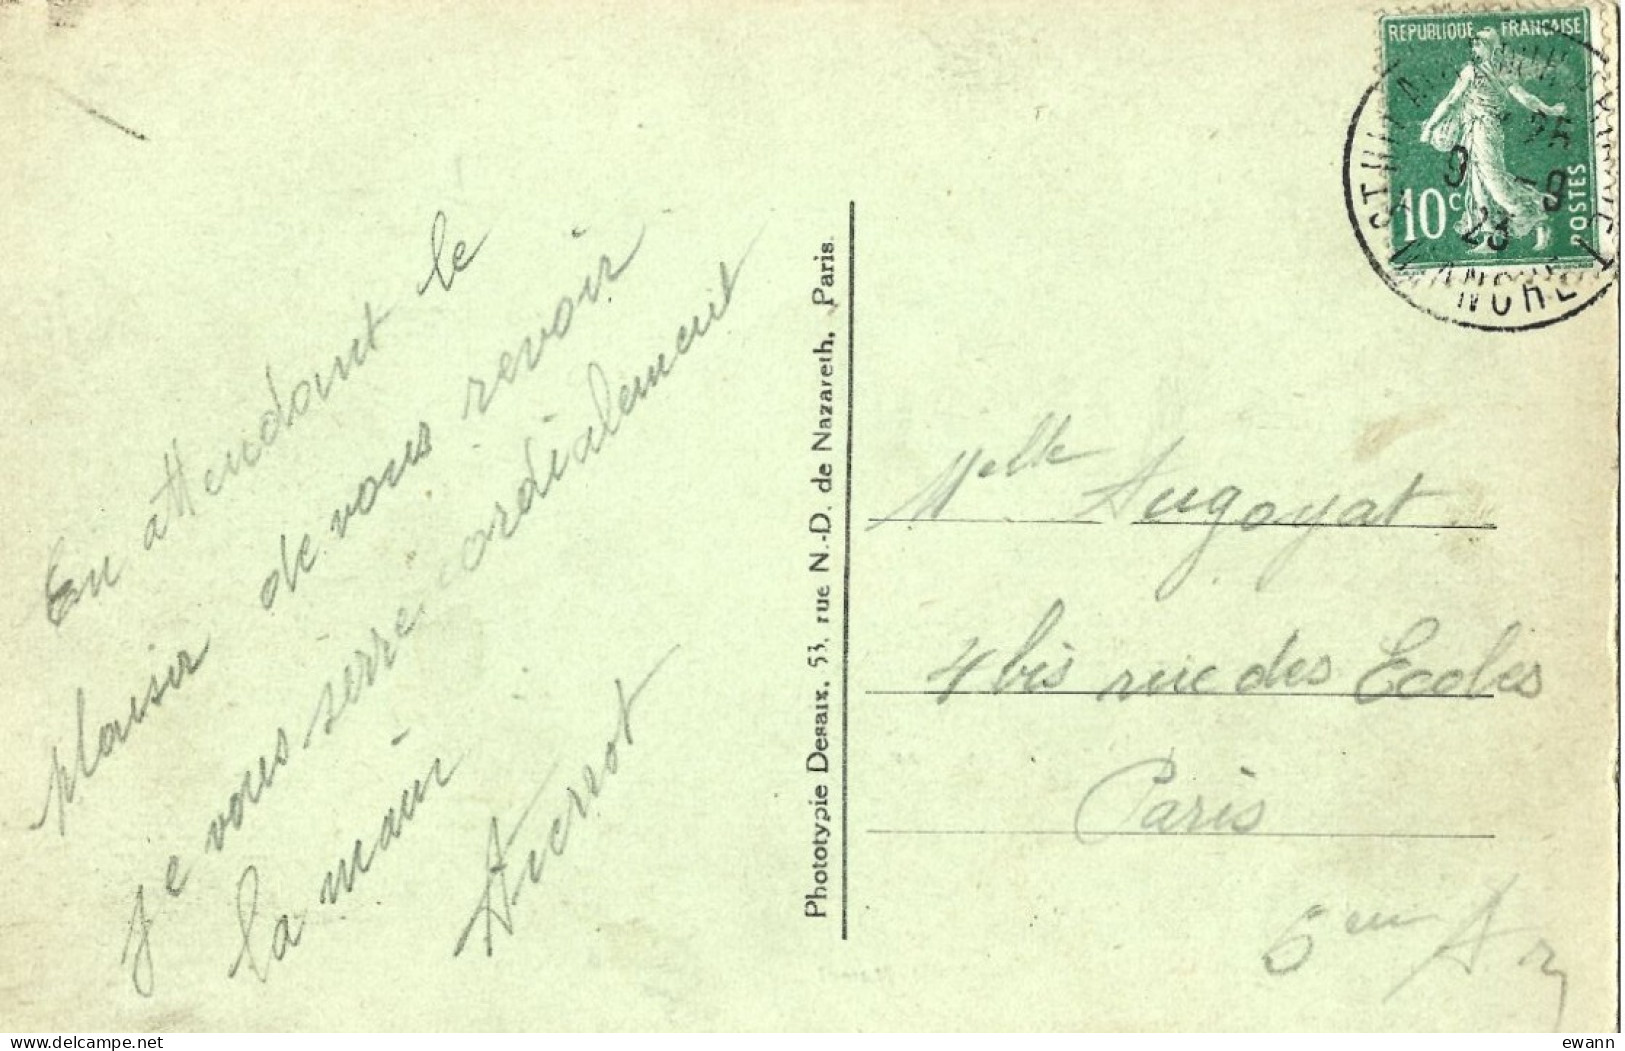 En attendant le
plaisir de vous revoir
je vous serre cordialement
la main
Phototypie Desaix, 53, rue N.-D. de Nazareth, Paris.
REPUBLIQUE FRANÇAISE
10c
POSTES
9 -9
23
MANCHE
Melle Augoyat
4 bis rue des Ecoles
Paris
5em Ar
delcampe.net
ewann